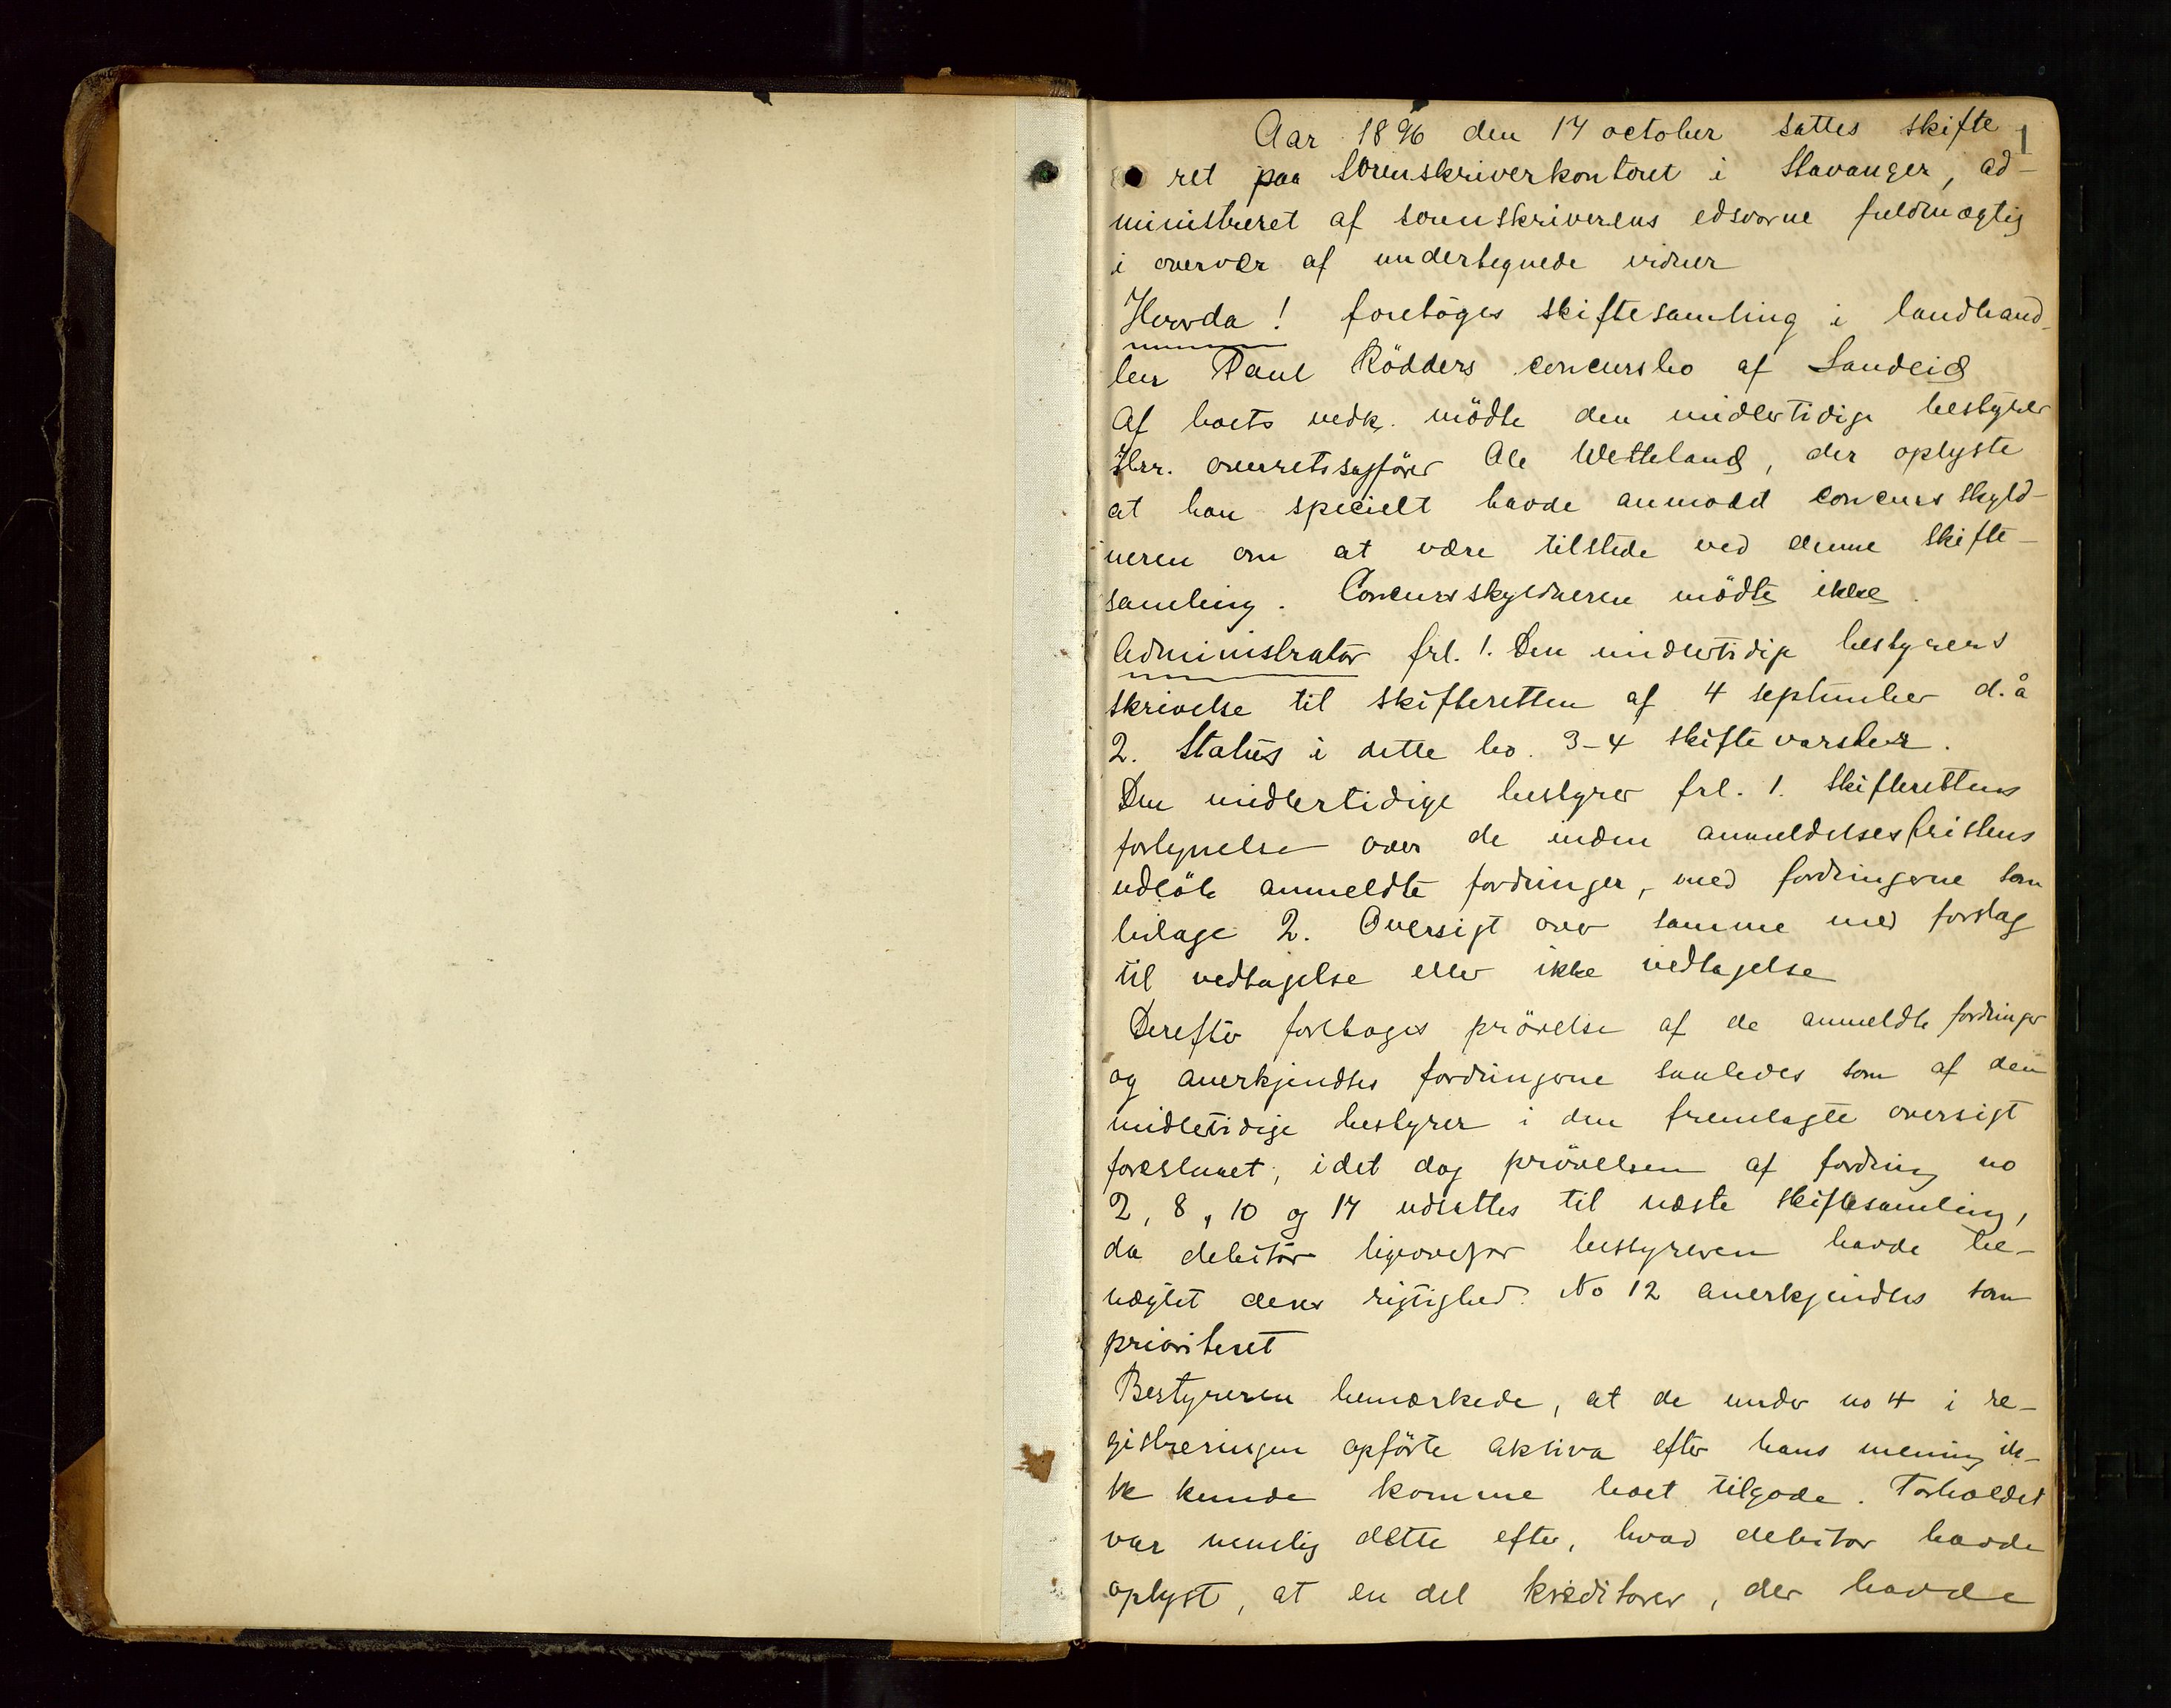 Aar 1896 den 17 october sattes skifte 1
ret paa Sorenskriverkontoret i Stavanger, ad-
ministreret af sorenskriverens edsvorne fuldmægtig
i overvær af undertegnede vidner
Hvorda! foretoges skiftesamling i landhand-
ler Paul Rödders concursbo af Sandeid
Af boets vedk. mödte den midlertidige bestyrer
Hrr. overretssagförer Ole Wetteland, der oplyste
at han specielt havde anmodet concursskyld-
neren om at være tilstede ved denne skifte-
samling. Concursskyldneren mödte ikke.
Administrator frl. 1. Den midlertidige bestyrers
skrivelse til skifteretten af 4 september d.å
2. Status i dette bo. 3-4 skiftevarsler.
Den midlertidige bestyrer frl. 1. Skifterettens
fortegnelse over de inden anmeldelsesfristens
udlöb anmeldte fordringer, med fordringerne som
bilage 2. Oversigt over samme med forslag
til vedtagelse eller ikke vedtagelse
Derefter foretoges prövelse af de anmeldte fordringer
og anerkjendtes fordringerne saaledes som af den
midletidige bestyrer i den fremlagte oversigt
foreslaaet, idet dog prövelsen af fordring no
2, 8, 10 og 17 udsattes til næste skiftesamling,
da debitor ligeoverfor bestyreren havde be-
nægtet deres rigtighed. No 12 anerkjendtes som
prioriteret
Bestyreren bemærkede, at de under no 4 i re-
gistreringen opförte aktiva efter hans mening ik-
ke kunde komme boet tilgode. Forholdet
var nemlig dette efter, hvad debitor havde
oplyst, at en del kreditorer, der havde